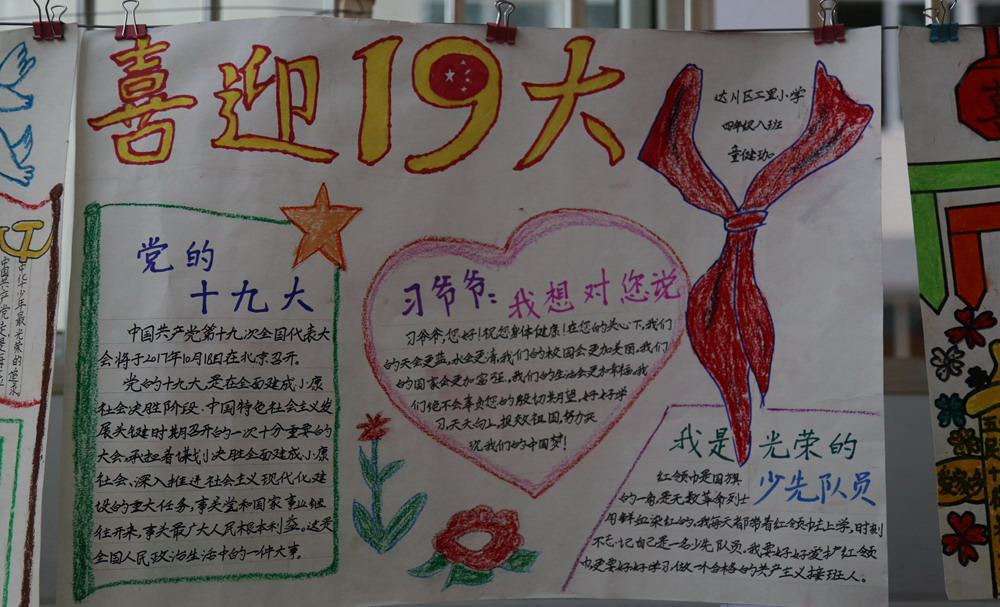 喜迎19大
达川区工里小学
四年级八班
党的
十九大
中国共产党第十九次全国代表大
会将于2017年10月18日在北京召开。
党的十九大,是在全面建成小康
社会决胜阶段、中国特色社会主义发
展关键时期召开的一次十分重要的
大会,承担着谋划决胜全面建成小康
社会、深入推进社会主义现代化建
设的重大任务,事关党和国家事业继
往开来,事关最广大人民根本利益。这是
全国人民政治生活中的一件大事。
习爷爷:我想对您说
习爷爷,您好!祝您身体健康!在您的关心下,我们
的天会更蓝,水会更清,我们的校园会更加美丽,我们
的国家会更加富强,我们的生活会更加幸福,我
们绝不会辜负您的殷切期望,好好学
习,天天向上,报效祖国,努力实
现我们的中国梦!
我是光荣的
少先队员
红领巾是国旗
的一角,是无数革命烈士
用鲜血染红的,我每天都带着红领巾去上学,时刻
不忘记自己是一名少先队员。我要好好爱护红领
巾更要好好学习,做一个合格的共产主义接班人。